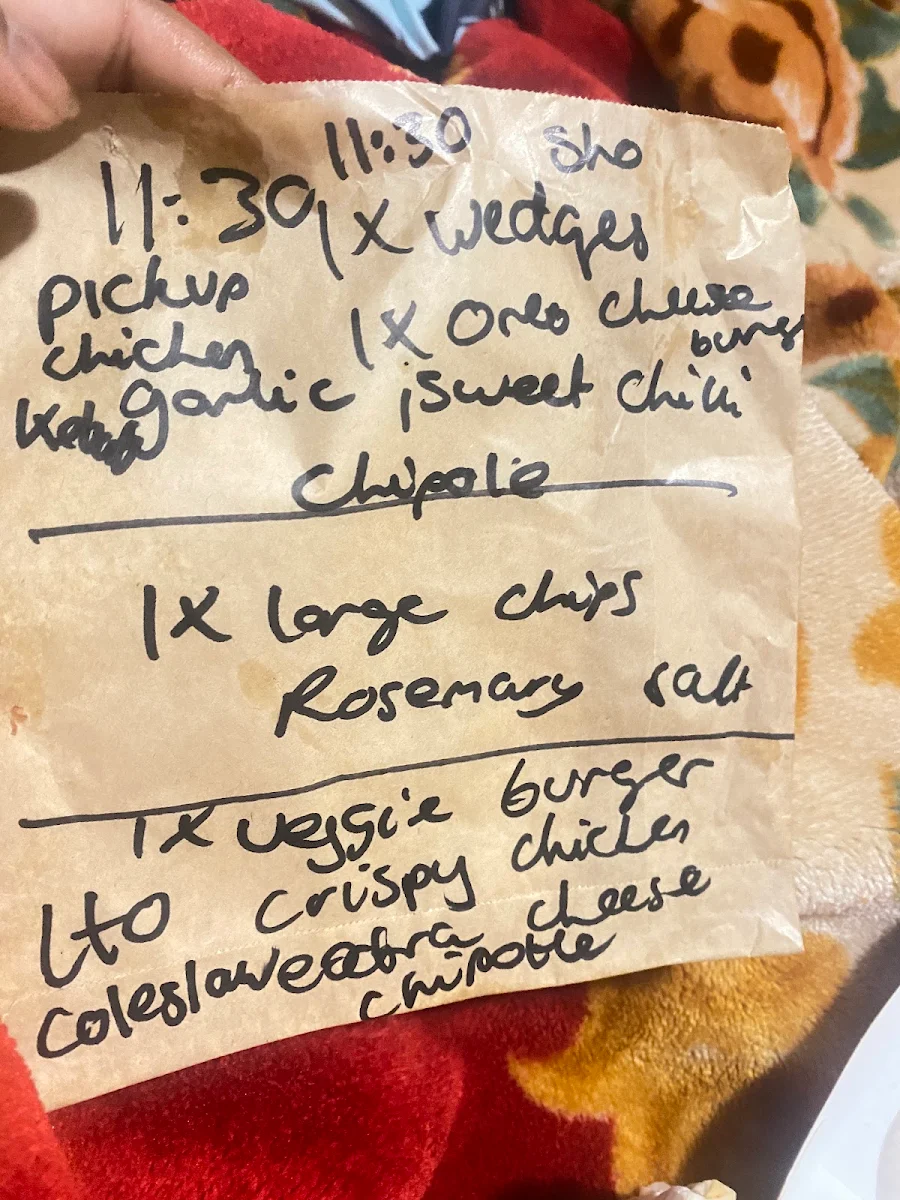 11:30 sho
11:30
1X wedges
pickup
chicken
1X oreo cheese
burger
garlic sweet chilli
Chipotle
1X large chips
Rosemary salt
1X veggie burger
Lto crispy chicken
coleslaw extra cheese
chipotle